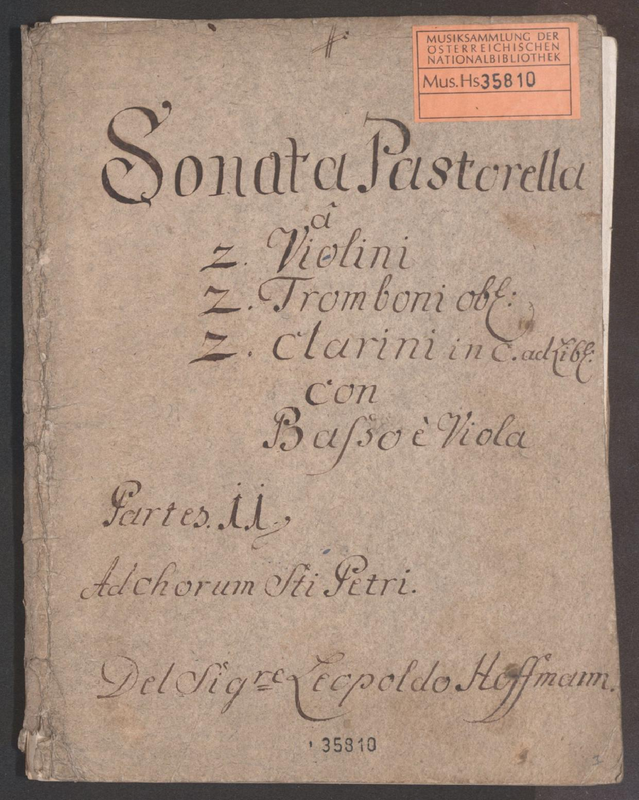 #:
MUSIKSAMMLUNG DER
ÖSTERREICHISCHEN
NATIONALBIBLIOTHEK
Mus.Hs35810
Sonata Pastorella
â
2. Violini
2. Tromboni obl:
2. Clarini in C. ad Libl:
con
Baſso è Viola
Partes. 11.
Ad Chorum Sti Petri.
Del Sigre Leopoldo Hoffmann.
35810